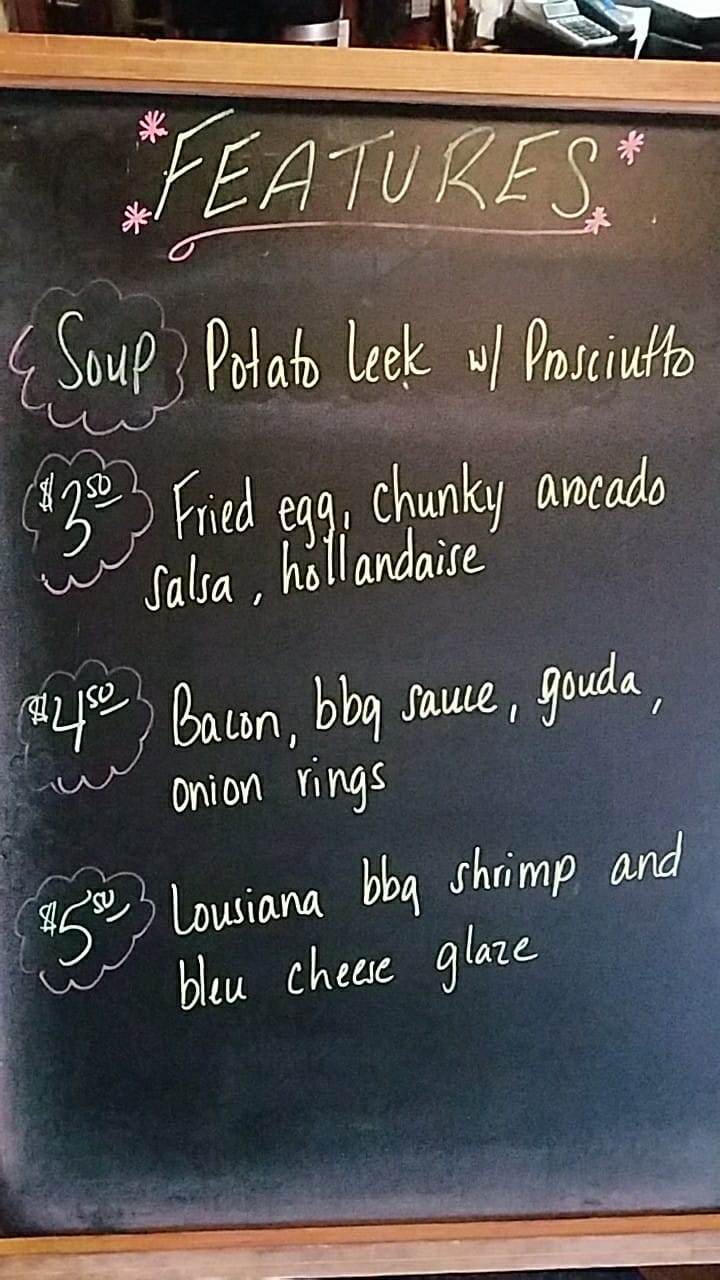 *FEATURES*
Soup Potato leek w/ Prosciutto
$3.50 Fried egg, chunky avocado
salsa, hollandaise
$4.50 Bacon, bbq sauce, gouda,
onion rings
$5.50 Lousiana bbq shrimp and
bleu cheese glaze